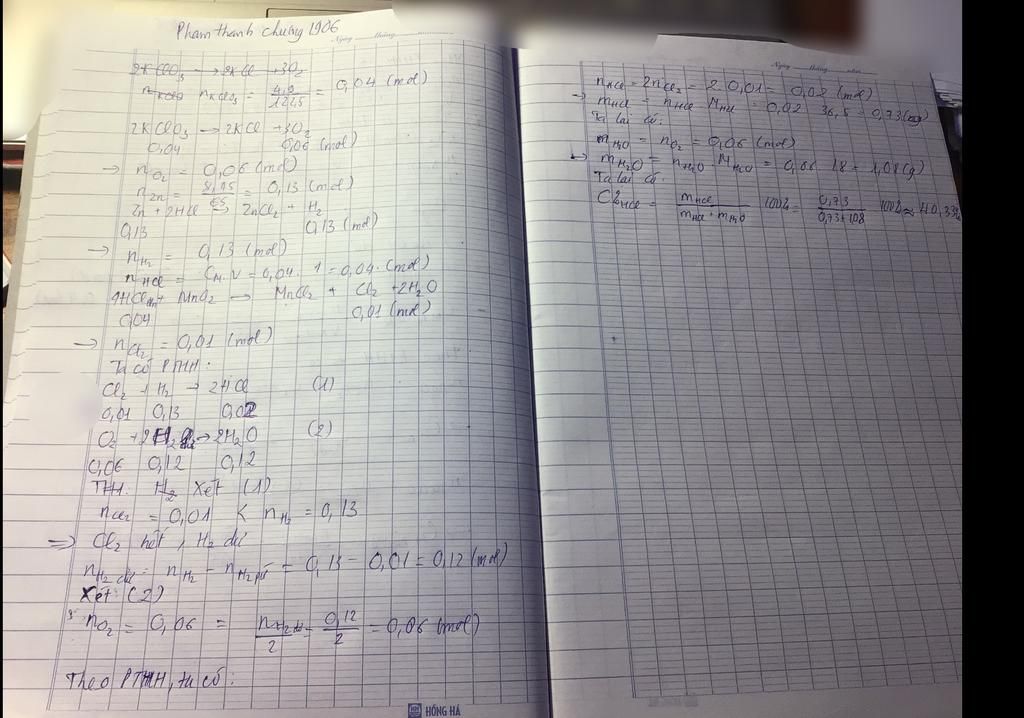 Phạm thanh chương 1906
Ngày ... tháng ... năm ...
2KClO3 → 2KCl + 3O2
nKClO3 = 4,9/122,5 = 0,04 (mol)
2KClO3 → 2KCl + 3O2
0,04 0,06 (mol)
→ nO2 = 0,06 (mol)
nZn = 8,45/65 = 0,13 (mol)
Zn + 2HCl → ZnCl2 + H2
0,13 0,13 (mol)
→ nH2 = 0,13 (mol)
nHCl = CM.V = 0,04. 1 = 0,04. (mol)
4HCl + MnO2 → MnCl2 + Cl2 + 2H2O
0,04 0,01 (mol)
→ nCl2 = 0,01 (mol)
Ta có PTHH:
Cl2 + H2 → 2HCl (1)
0,01 0,13 0,02
O2 + 2H2 → 2H2O (2)
0,06 0,12 0,12
THH: H2 Xét (1)
nCl2 = 0,01 < nH2 = 0,13
⇒ Cl2 hết, H2 dư
nH2 dư = nH2 - nH2 pứ = 0,13 - 0,01 = 0,12 (mol)
Xét (2)
nO2 = 0,06 = nH2 dư/2 = 0,12/2 = 0,06 (mol)
Theo PTHH, ta có:
HỒNG HÀ
Ngày ... tháng ... năm ...
nHCl = 2nCl2 = 2. 0,01 = 0,02 (mol)
→ mHCl = nHCl MHCl = 0,02 36,5 = 0,73 (g)
Ta lại có:
mH2O = nO2 = 0,06 (mol)
→ mH2O = nH2O MH2O = 0,06 18 = 1,08 (g)
Ta lại có
C%HCl = mHCl/(mHCl + mH2O) 100% = 0,73/(0,73+1,08) 100% ≈ 40,33%